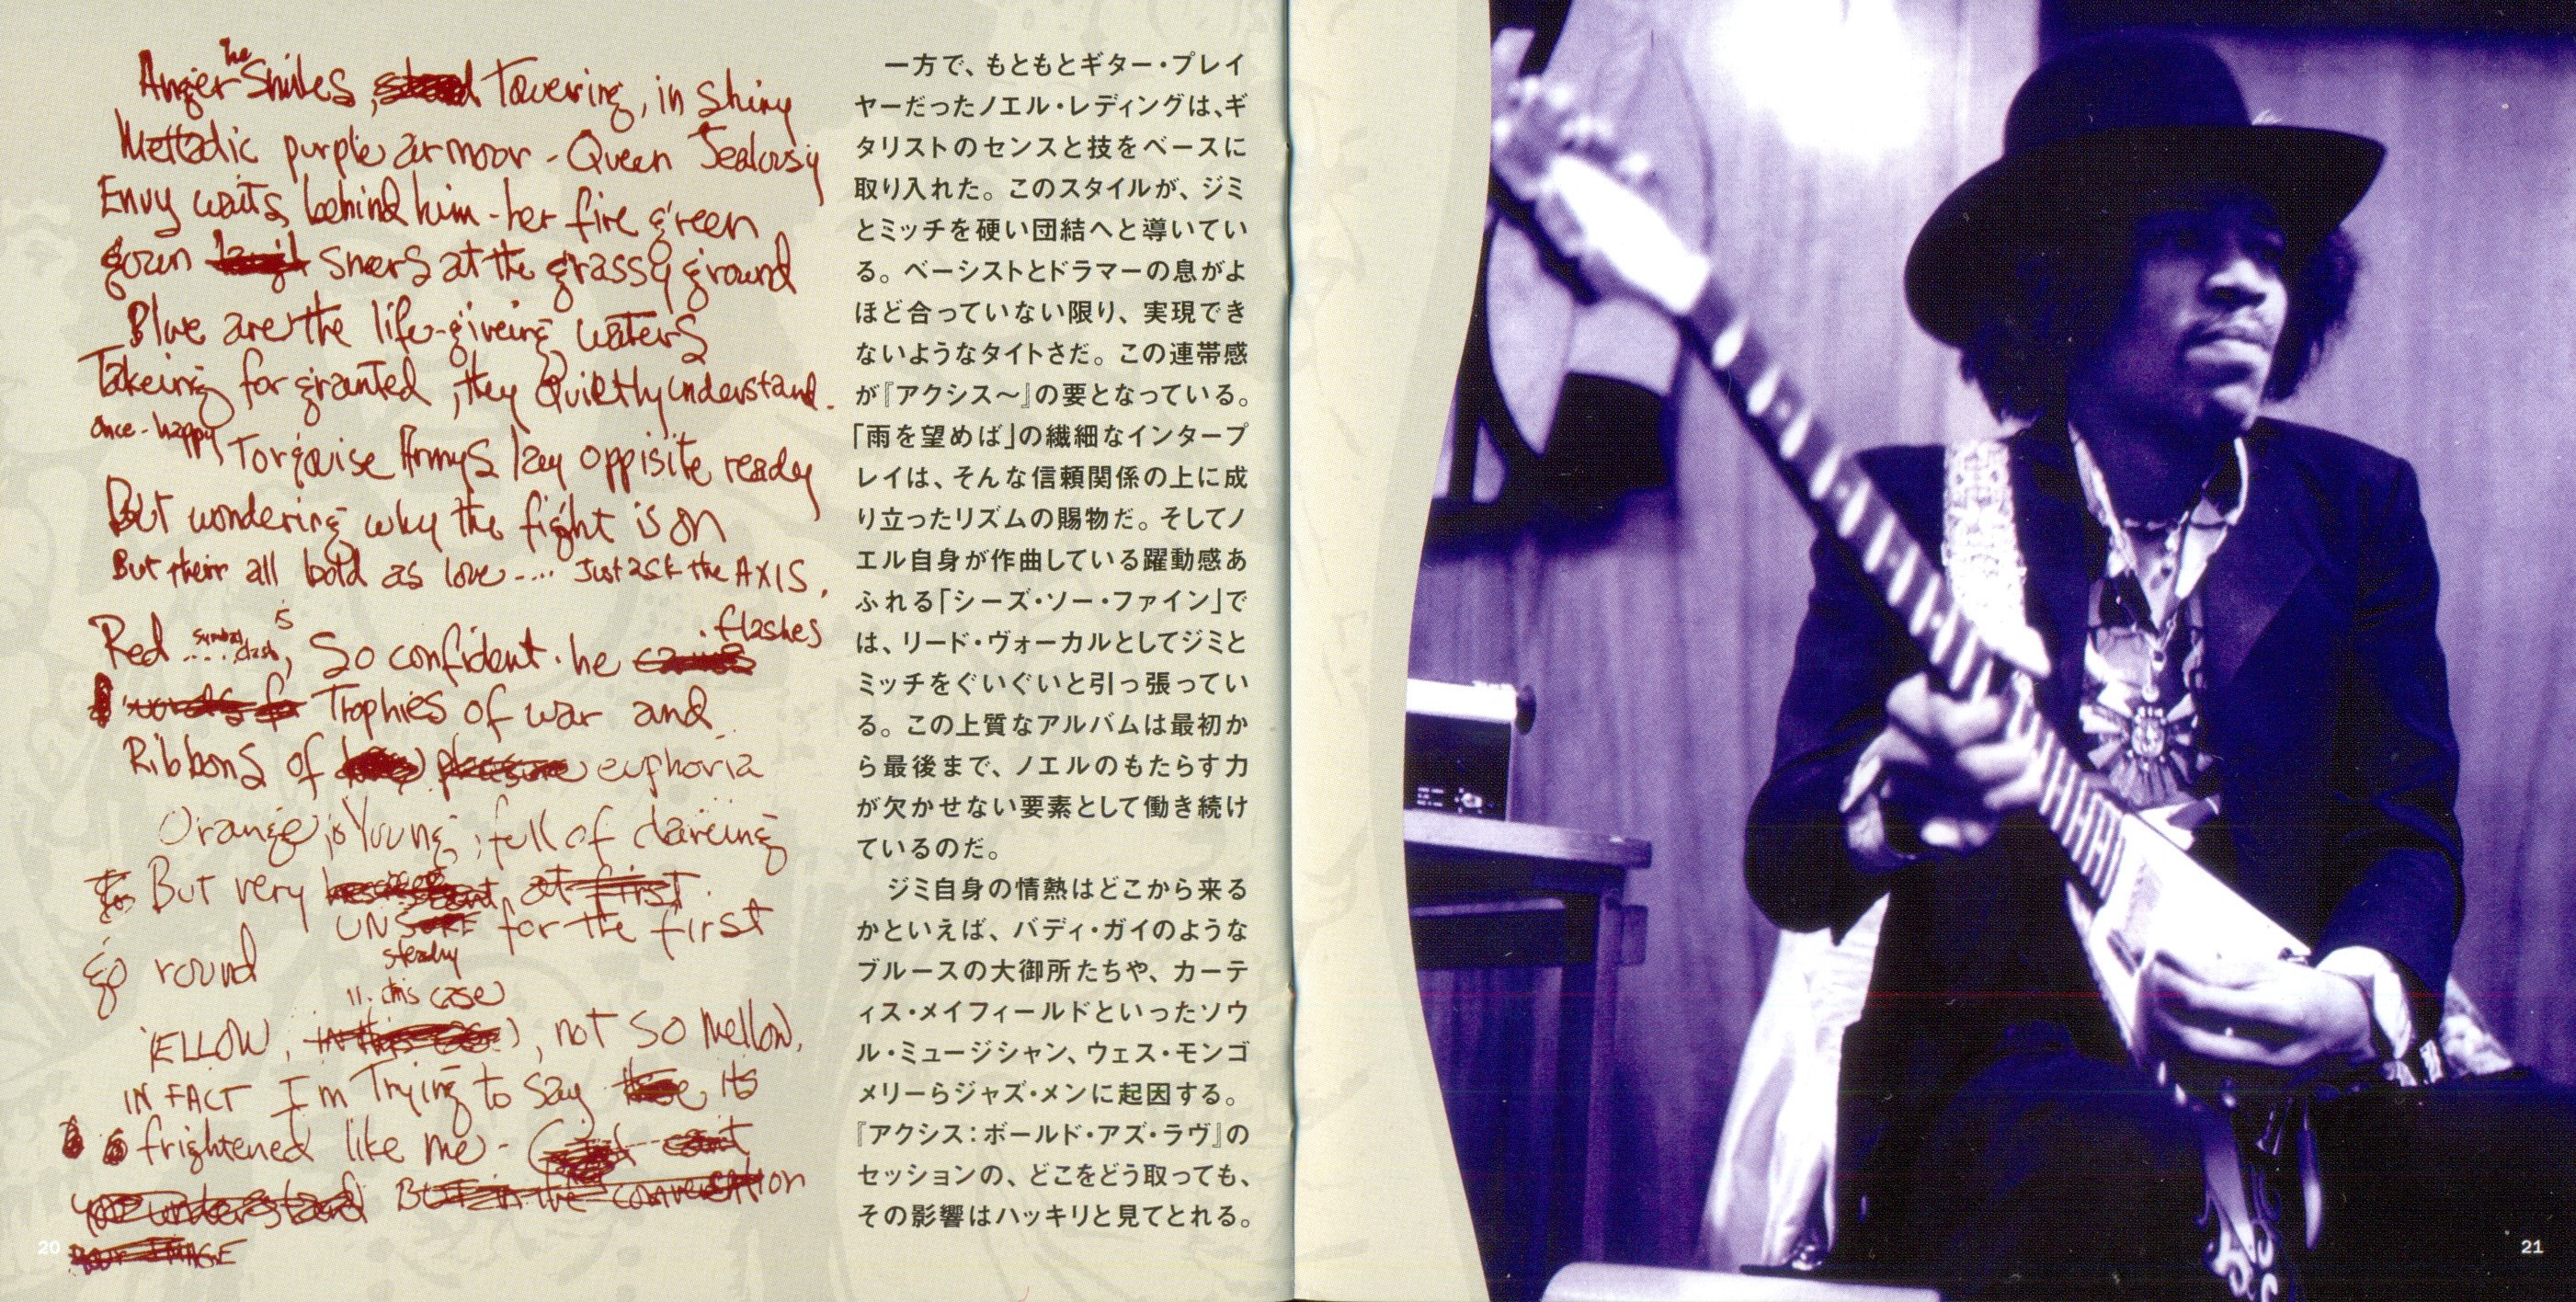 he
Anger Smiles, Towering, in shiny
Mettalic purple armoor - Queen Jealousy
Envy waits behind him - her fire green
gown sneers at the grassy ground
Blue are the life-giveing waters
Takeing for granted, they Quiettly understand.
once-happy Torquise Armys lay oppisite ready
But wondering why the fight is on
But their all bold as love.... Just ask the AXIS.
is
. flashes
Red ...., So confident. he
Trophies of war and
Ribbons of pleasure euphoria
Orange is Young, full of dareing
to But very at first.
UNSURE for the first
steady
go round
in this case
YELLOW, in this case, not so mellow,
IN FACT I'm Trying to say its
frightened like me - cant
you understand But in the conversation
your IMAGE
20
一方で、もともとギター・プレイ
ヤーだったノエル・レディングは、ギ
タリストのセンスと技をベースに
取り入れた。このスタイルが、ジミ
とミッチを硬い団結へと導いてい
る。ベーシストとドラマーの息がよ
ほど合っていない限り、実現でき
ないようなタイトさだ。この連帯感
が『アクシス〜』の要となっている。
「雨を望めば」の繊細なインタープ
レイは、そんな信頼関係の上に成
り立ったリズムの賜物だ。そしてノ
エル自身が作曲している躍動感あ
ふれる「シーズ・ソー・ファイン」で
は、リード・ヴォーカルとしてジミと
ミッチをぐいぐいと引っ張ってい
る。この上質なアルバムは最初か
ら最後まで、ノエルのもたらす力
が欠かせない要素として働き続け
ているのだ。
ジミ自身の情熱はどこから来る
かといえば、バディ・ガイのような
ブルースの大御所たちや、カーテ
ィス・メイフィールドといったソウ
ル・ミュージシャン、ウェス・モンゴ
メリーらジャズ・メンに起因する。
『アクシス：ボールド・アズ・ラヴ』の
セッションの、どこをどう取っても、
その影響はハッキリと見てとれる。
21